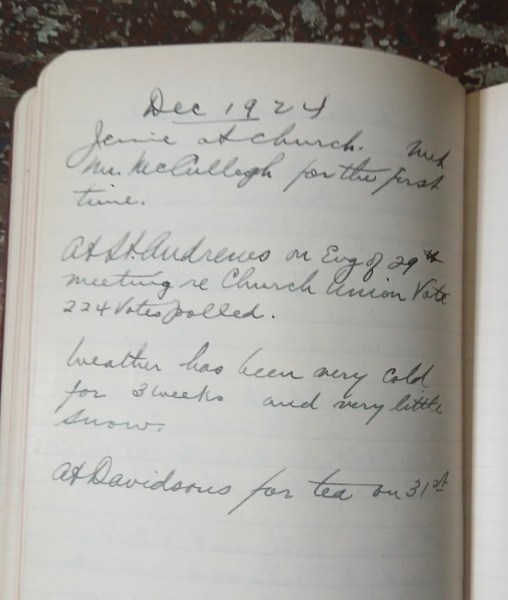 Dec 1924
Jennie at Church. Met
Mr. McCullogh for the first
time.
At St. Andrews on Evg of 29th
meeting re Church Union Vote
224 Votes polled.
Weather has been very cold
for 3 weeks and very little
snow.
At Davidsons for tea on 31st